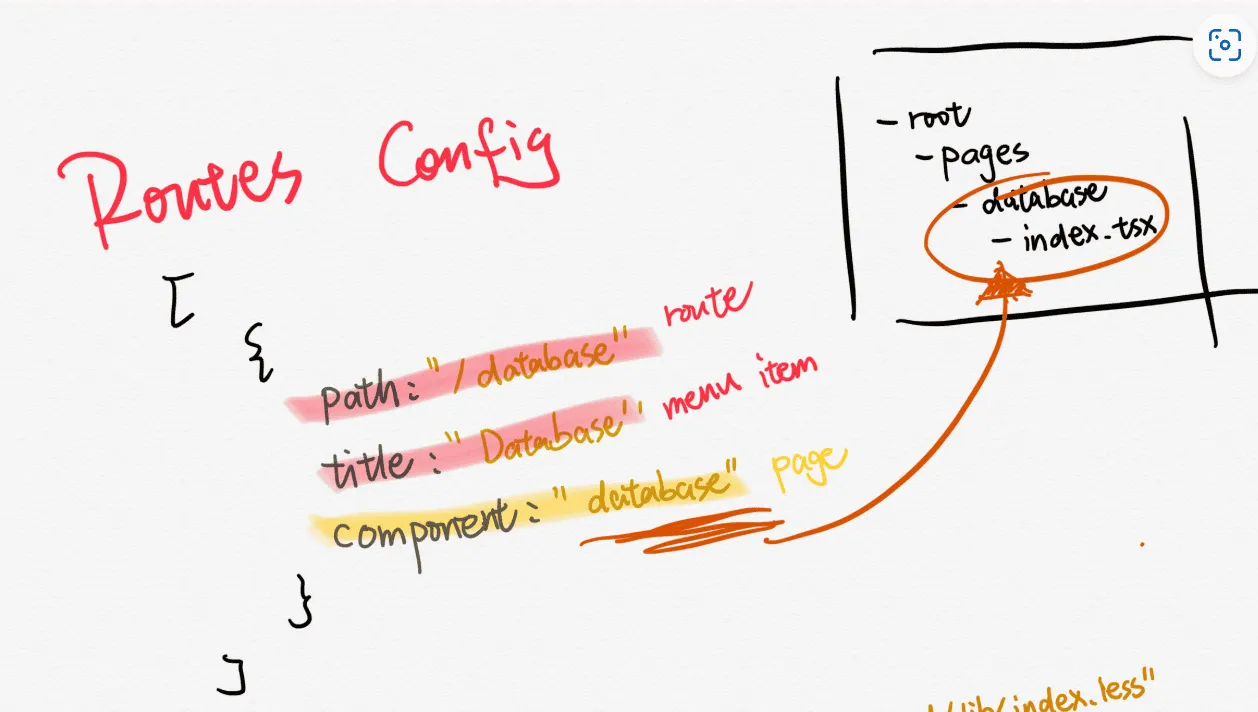 Routes Config
[
{
path: "/database" route
title: "Database" menu item
component: "database" page
}
]
- root
- pages
- database
- index.tsx
/lib/index.less"